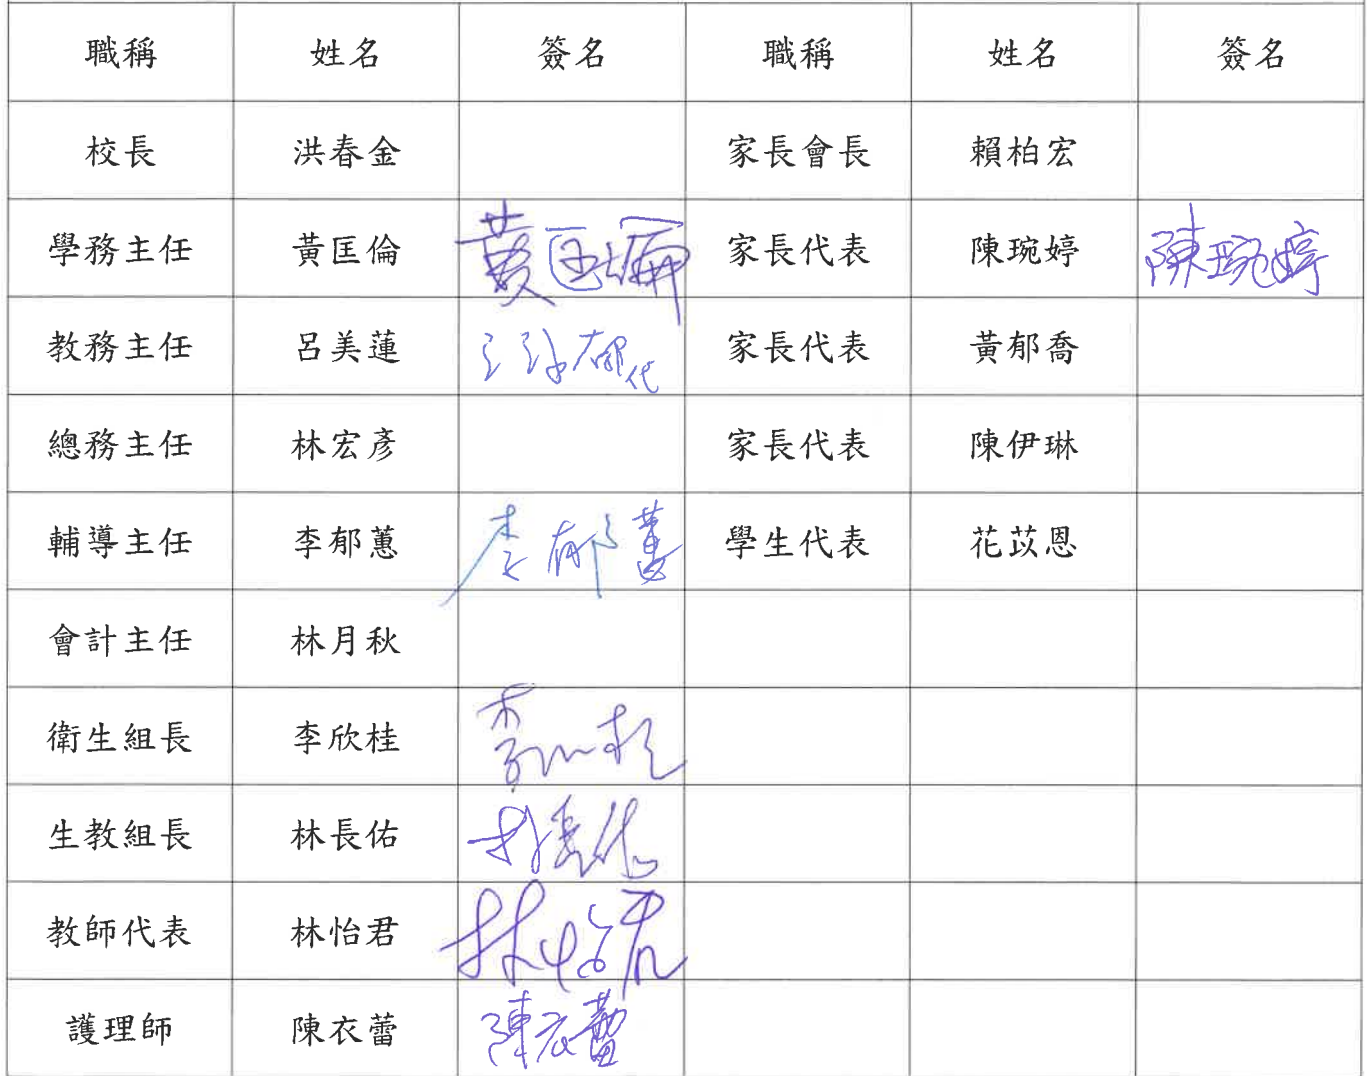 職稱 姓名 簽名 職稱 姓名 簽名
校長 洪春金 家長會長 賴柏宏
學務主任 黃匡倫 黃匡倫 家長代表 陳琬婷 陳琬婷
教務主任 呂美蓮 代 家長代表 黃郁喬
總務主任 林宏彥 家長代表 陳伊琳
輔導主任 李郁蕙 李郁蕙 學生代表 花苡恩
會計主任 林月秋
衛生組長 李欣桂 李欣桂
生教組長 林長佑 林長佑
教師代表 林怡君 林怡君
護理師 陳衣蕾 陳衣蕾